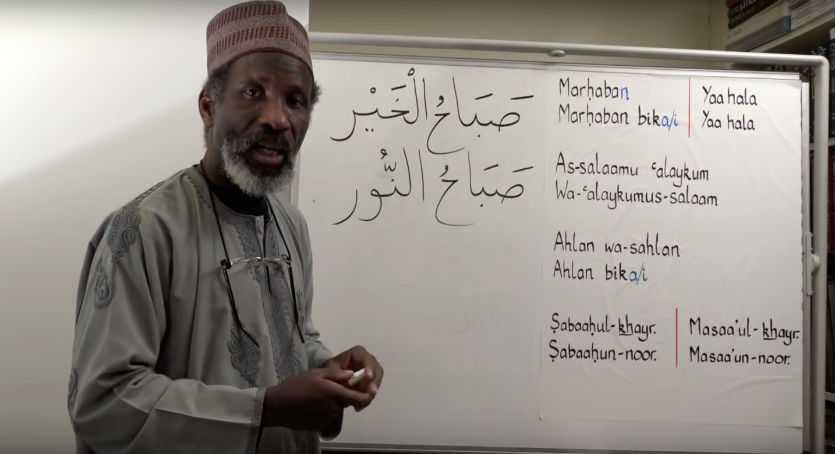 صَبَاحُ الْخَيْر
صَبَاحُ النُّور
Marḥaban
Marḥaban bika/i
Yaa hala
Yaa hala
As-salaamu ʿalaykum
Wa-ʿalaykumus-salaam
Ahlan wa-sahlan
Ahlan bika/i
Ṣabaaḥul-khayr.
Ṣabaaḥun-noor.
Masaa'ul-khayr.
Masaa'un-noor.